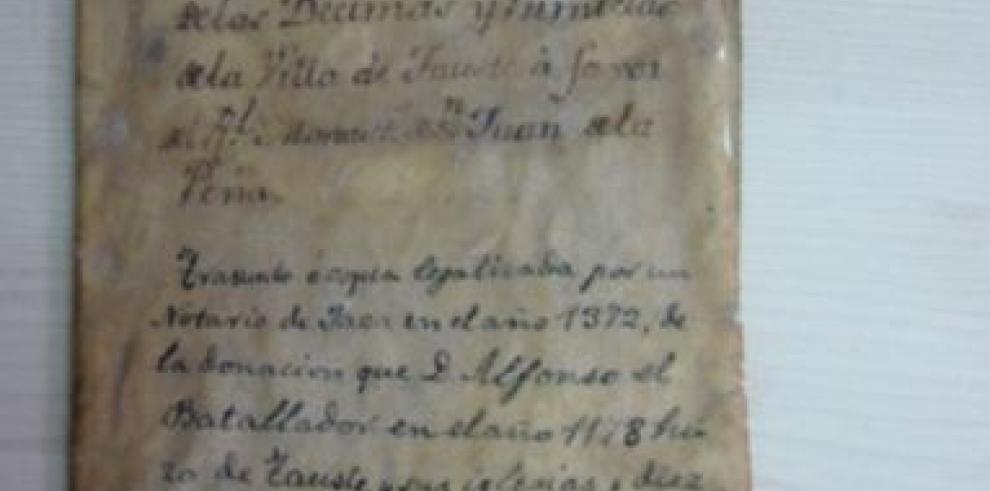 de las Decimas y Primicias
de la Villa de Tauste à favor
del Rl. Juan de la
Peña.
Trasunto ó copia legalizada por un
Notario de Jaca en el año 1372, de
la donacion que D. Alfonso el
Batallador en el año 11 8 hi
zo de Tauste y sus iglesias y diez